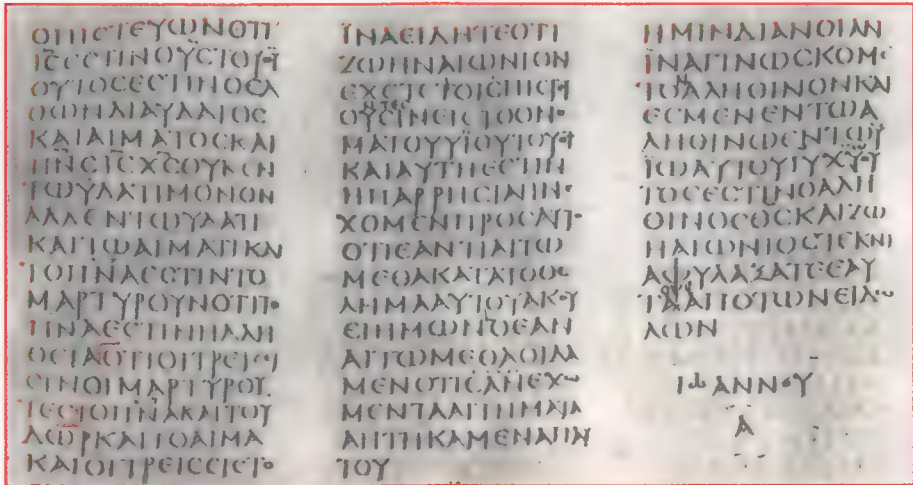 ΟΠΙϹΤΕΥΩΝΟΤΙ
ΙϹΕϹΤΙΝΟΥϹΤΟΥΘΥ
ΟΥΤΟϹΕϹΤΙΝΟΕΛ
ΘΩΝΔΙΑΥΔΑΤΟϹ
ΚΑΙΑΙΜΑΤΟϹΚΑΙ
ΠΝϹΙϹΧϹΟΥΚΕΝ
ΤΩΥΔΑΤΙΜΟΝΟΝ
ΑΛΛΕΝΤΩΥΔΑΤΙ
ΚΑΙΤΩΑΙΜΑΤΙΚΑΙ
ΤΟΠΝΑΕϹΤΙΝΤΟ
ΜΑΡΤΥΡΟΥΝΟΤΙΤΟ
ΠΝΑΕϹΤΙΝΗΑΛΗ
ΘΕΙΑΟΤΙΟΙΤΡΕΙϹΕΙ
ϹΙΝΟΙΜΑΡΤΥΡΟΥ
ΤΕϹΤΟΠΝΑΚΑΙΤΟΥ
ΔΩΡΚΑΙΤΟΑΙΜΑ
ΚΑΙΟΙΤΡΕΙϹΕΙϹΤΟ
ΪΝΑΕΙΔΗΤΕΟΤΙ
ΖΩΗΝΑΙΩΝΙΟΝ
ΕΧΕΤΕΤΟΙϹΠΙϹΤΕΥ
ΟΥϹΙΝΕΙϹΤΟΟΝΟ
ΜΑΤΟΥΥΪΟΥΤΟΥΘΥ
ΚΑΙΑΥΤΗΕϹΤΙΝ
ΗΠΑΡΡΗϹΙΑΗΝΕ
ΧΟΜΕΝΠΡΟϹΑΥΤΟ
ΟΤΙΕΑΝΤΙΑΙΤΩ
ΜΕΘΑΚΑΤΑΤΟΘΕ
ΛΗΜΑΑΥΤΟΥΑΚΟΥ
ΕΙΗΜΩΝΟΕΑΝ
ΑΙΤΩΜΕΘΑΟΙΔΑ
ΜΕΝΟΤΙΕΑΝΕΧΩ
ΜΕΝΤΑΑΙΤΗΜΑΤΑ
ΑΗΤΗΚΑΜΕΝΑΠΑΥ
ΤΟΥ
ΗΜΙΝΔΙΑΝΟΙΑΝ
ΪΝΑΓΙΝΩϹΚΟΜΕ
ΤΟΑΛΗΘΙΝΟΝΚΑΙ
ΕϹΜΕΝΕΝΤΩΑ
ΛΗΘΙΝΩΕΝΤΩΥ
ΙΩΑΥΤΟΥΙΥΧΥΟΥ
ΤΟϹΕϹΤΙΝΟΑΛΗ
ΘΙΝΟϹΘϹΚΑΙΖΩ
ΗΑΙΩΝΙΟϹΤΕΚΝΙ
ΑΦΥΛΑΞΑΤΕΕΑΥ
ΤΑΑΠΟΤΩΝΕΙΔΩ
ΛΩΝ
ΙΩΑΝΝΟΥ
Α